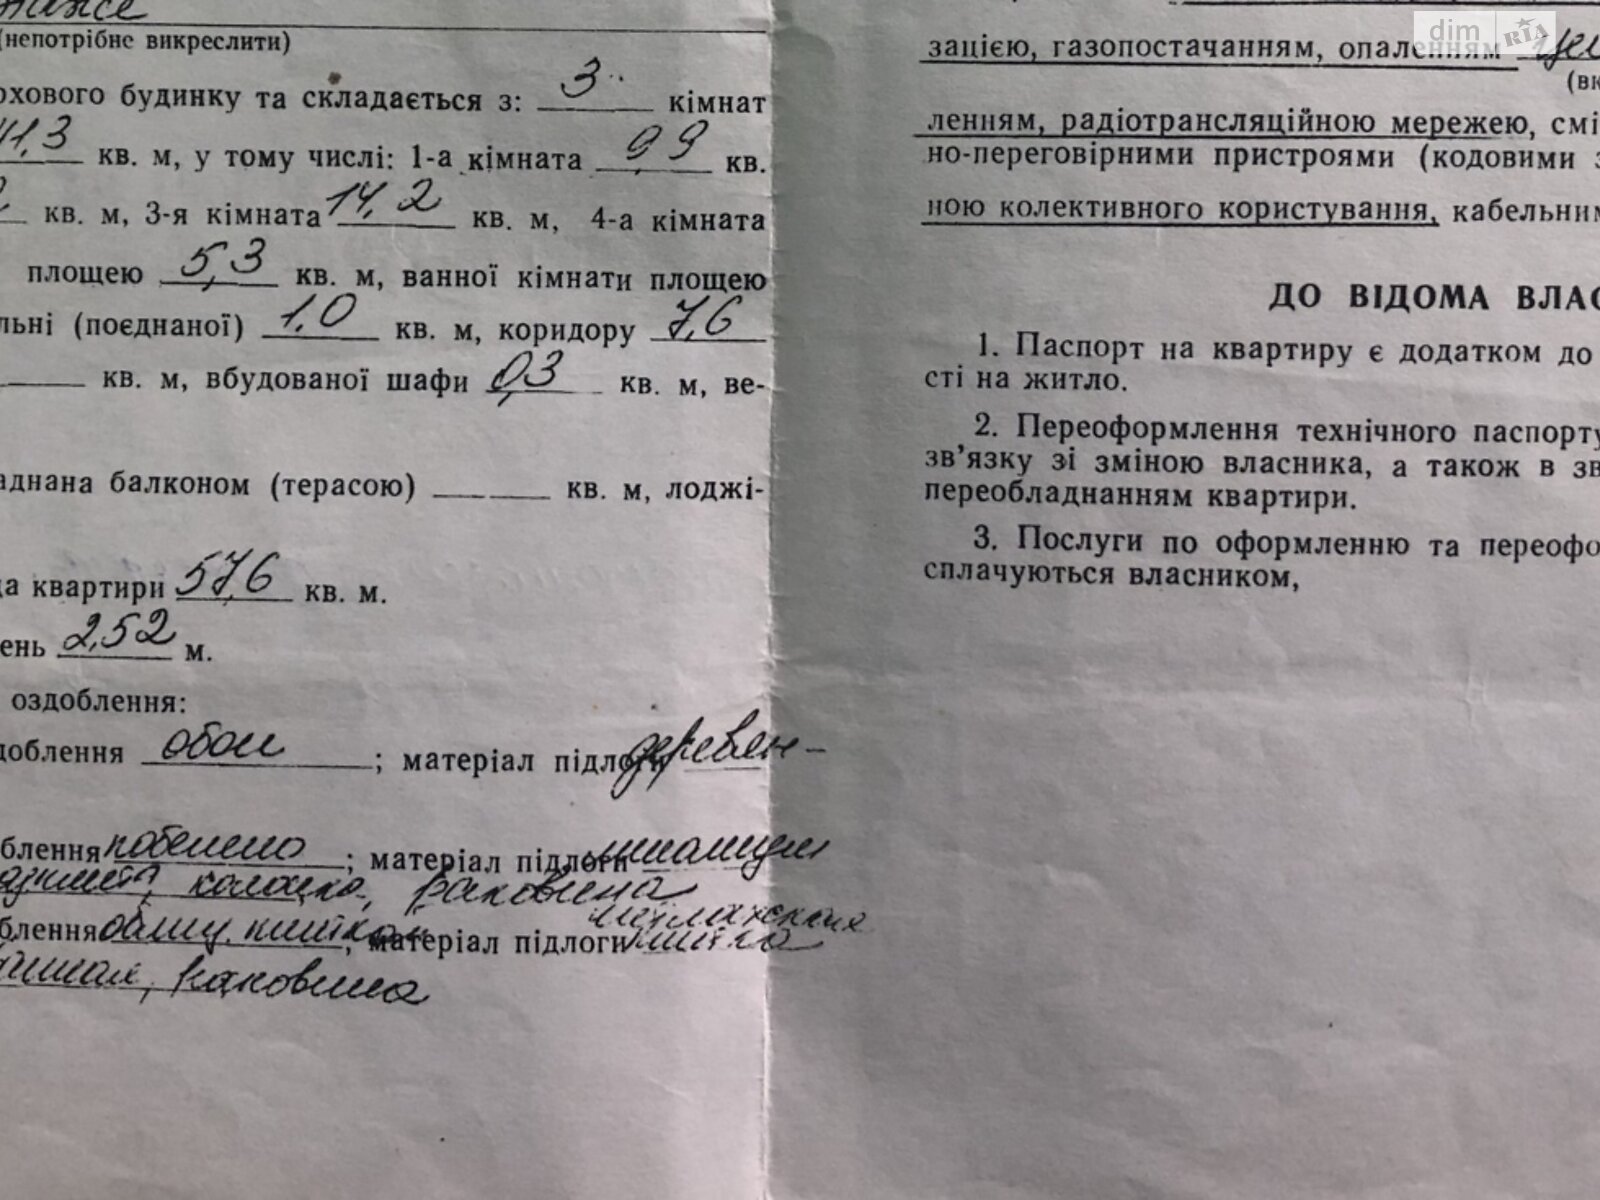 (непотрібне викреслити)
рхового будинку та складається з: 3 кімнат
41,3 кв. м, у тому числі: 1-а кімната 9,9 кв.
кв. м, 3-я кімната 14,2 кв. м, 4-а кімната
площею 5,3 кв. м, ванної кімнати площею
льні (поєднаної) 1,0 кв. м, коридору 7,6
кв. м, вбудованої шафи 0,3 кв. м, ве-
аднана балконом (терасою) кв. м, лоджі-
ща квартири 57,6 кв. м.
ень 2,52 м.
оздоблення:
доблення обои ; матеріал підлоги деревян-
блення побелено ; матеріал підлоги
раковина
блення матеріал підлоги плитка
раковина
dim RIA
зацією, газопостачанням, опаленням
(вк
ленням, радіотрансляційною мережею, смі
но-переговірними пристроями (кодовими з
ною колективного користування, кабельним
ДО ВІДОМА ВЛАС
1. Паспорт на квартиру є додатком до
сті на житло.
2. Переоформлення технічного паспорту
зв'язку зі зміною власника, а також в зв
переобладнанням квартири.
3. Послуги по оформленню та переофо
сплачуються власником,